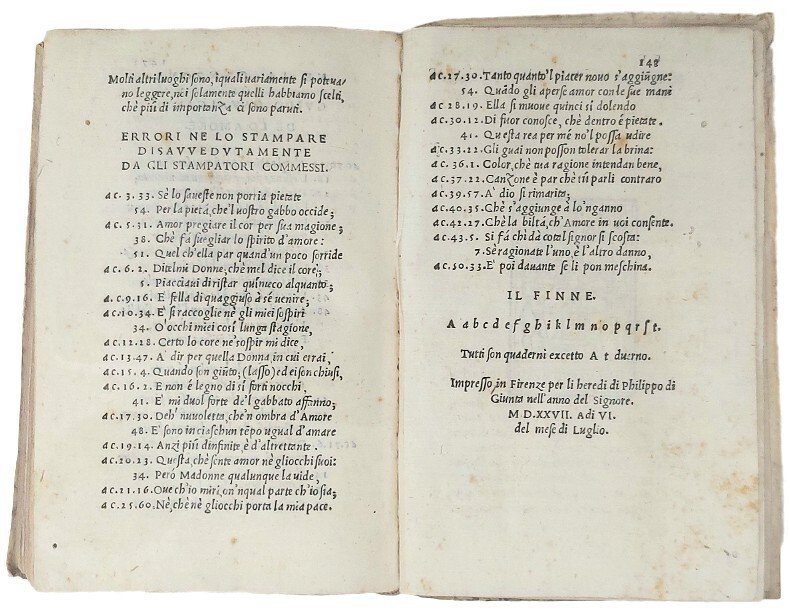 Molti altri luoghi sono, i quali variamente si poteua-
no leggere, noi solamente quelli habbiamo scelti,
chè più di importanza ci sono paruti.
ERRORI NE LO STAMPARE
DISAVVEDVTAMENTE
DA GLI STAMPATORI COMMESSI.
ac. 3. 33. Sè lo saueste non porria pietate
54. Per la pietà, che'l uostro gabbo occide;
ac. 5. 31. Amor pregiare il cor per sua magione;
38. Chè fà suegliar lo spirito d'amore:
51. Quel ch'ella par quand'un poco sorride
ac. 6. 2. Ditelmi Donne, chè mel dice il core;
5. Piacciaui di ristar qui meco alquanto;
ac. 9. 16. E fella di quaggiuso à sé uenire;
ac. 10. 34. E' si raccoglie nè gli miei sospiri
34. O'occhi miei così lunga stagione,
ac. 12. 28. Certo lo core ne'sospir mi dice,
ac. 13. 47. A' dir per quella Donna in cui errai,
ac. 15. 4. Quando son giūto; (lasso) ed ei son chiusi,
ac. 16. 2. E non é legno di sì forti nocchi,
41. E' mi duol forte de'l gabbato affanno;
ac. 17. 30. Deh' nuuoletta, che'n ombra d'Amore
48. E' sono in ciaschun tēpo ugual d'amare
ac. 19. 14. Anzi più d'infinite è d'altrettante.
ac. 20. 23. Questa, chè sente amor nè gliocchi suoi:
34. Però Madonne qualunque la uide,
ac. 21. 16. Oue ch'io miri, o'n qual parte ch'io sia;
ac. 25. 60. Nè, chè nè gliocchi porta la mia pace.
148
ac. 27. 30. Tanto quanto'l piacer nouo s'aggiūgne:
54. Quādo gli aperse amor con le sue mani
ac. 28. 19. Ella si muoue quinci sì dolendo
ac. 30. 12. Di fuor conosce, chè dentro é pietate.
41. Questa rea per mé no'l possa udire
ac. 33. 22. Gli guai non posson tolerar la brina:
ac. 36. 1. Color, chè tua ragione intendan bene,
ac. 37. 22. CanZone è par chè tù parli contraro
ac. 39. 57. A' dio si rimarita;
ac. 40. 35. Chè s'aggiunge à lo'nganno
ac. 42. 27. Chè la biltà, ch'Amore in uoi consente.
ac. 43. 5. Si fà chi dà cotal signor si scosta:
7. Sè ragionate l'uno è l'altro danno,
ac. 50. 33. E' poi dauante se li pon meschina.
IL FINNE.
A a b c d e f g h i k l m n o p q r s t.
Tutti son quaderni excetto A t duerno.
Impresso in Firenze per li heredi di Philippo di
Giunta nell'anno del Signore.
M D.XXVII. Adi VI.
del mese di Luglio.